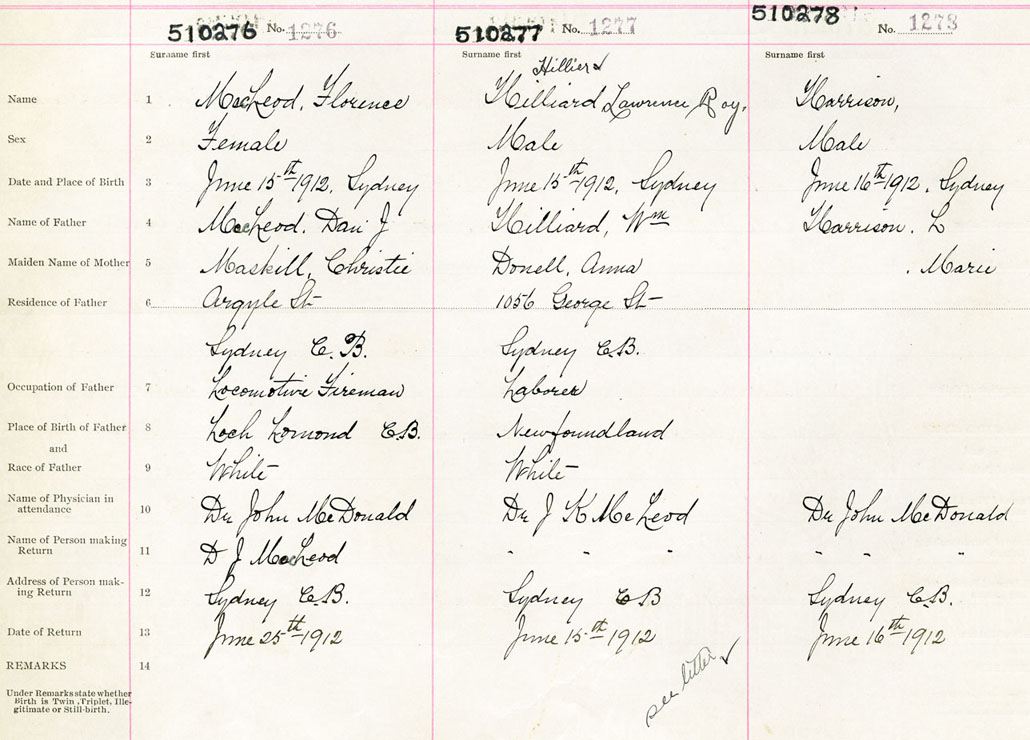 510276 No. 1276 510277 No. 1277 510278 No. 1278
Surname first Surname first Surname first
Hillier
Name 1 MacLeod, Florence Hilliard, Lawrence Roy. Harrison,
Sex 2 Female Male Male
Date and Place of Birth 3 June 15th 1912, Sydney June 15th 1912, Sydney June 16th 1912, Sydney
Name of Father 4 MacLeod, Dan J Hilliard, Wm Harrison, L
Maiden Name of Mother 5 Maskill, Christie Donell, Anna . Marie
Residence of Father 6 Argyle St 1056 George St
Sydney C.B. Sydney C.B.
Occupation of Father 7 Locomotive Fireman Laborer
Place of Birth of Father 8 Loch Lomond C.B. Newfoundland
and
Race of Father 9 White White
Name of Physician in
attendance 10 Dr John McDonald Dr J K McLeod Dr John McDonald
Name of Person making
Return 11 D J MacLeod " " " " " "
Address of Person mak-
ing Return 12 Sydney C.B. Sydney C B Sydney C.B.
Date of Return 13 June 25th 1912 June 15th 1912 June 16th 1912
REMARKS 14
see letter
Under Remarks state whether
Birth is Twin, Triplet, Ille-
gitimate or Still-birth.